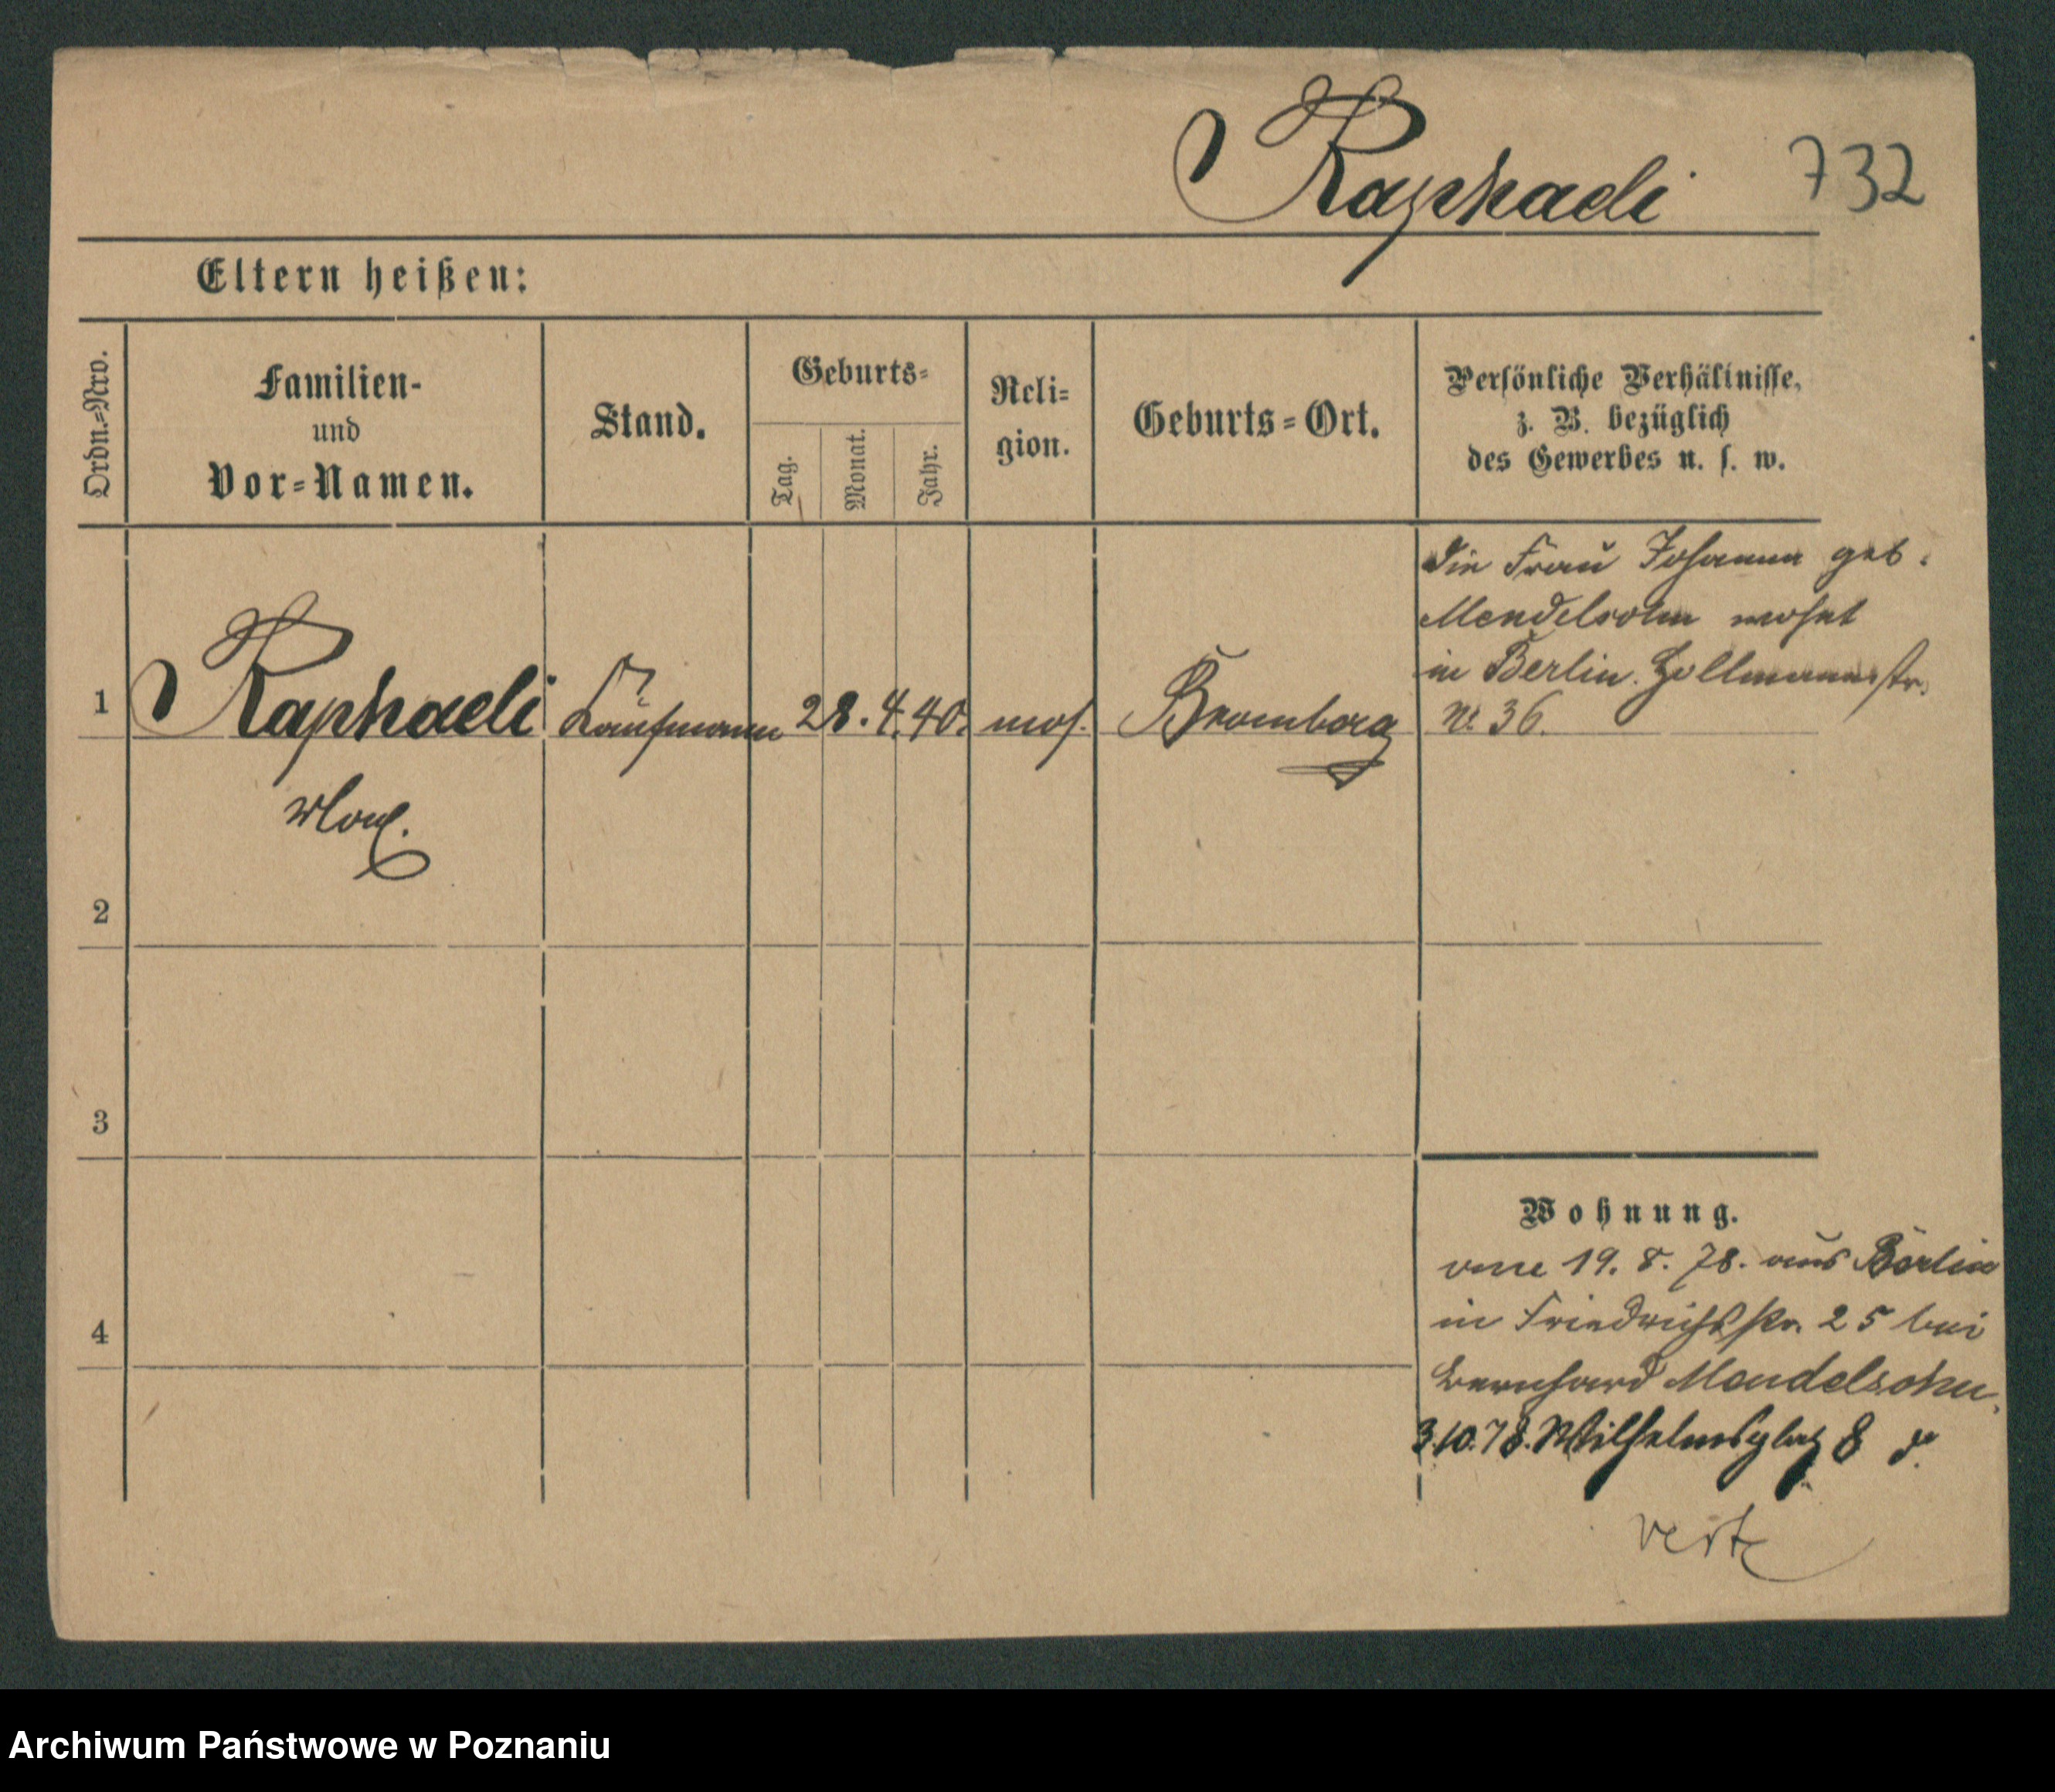 Raphaeli
732
Eltern heißen:
Ordn.=Nro.
Familien-
und
Vor=Namen.
Stand.
Geburts=
Tag.
Monat.
Jahr.
Reli=
gion.
Geburts=Ort.
Persönliche Verhältnisse,
z. B. bezüglich
des Gewerbes u. s. w.
1
Raphaeli
Kaufmann
28. 4. 40.
mos.
Bromberg
die Frau Johanna geb.
Mendelsohn wohnt
in Berlin
No 36.
2
3
4
Wohnung.
19. 8. 78. aus Berlin
in Friedrichsstr. 25 bei
Bernhard Mendelsohn.
3.10.78. Wilhelmsplatz 8
verte
Archiwum Państwowe w Poznaniu